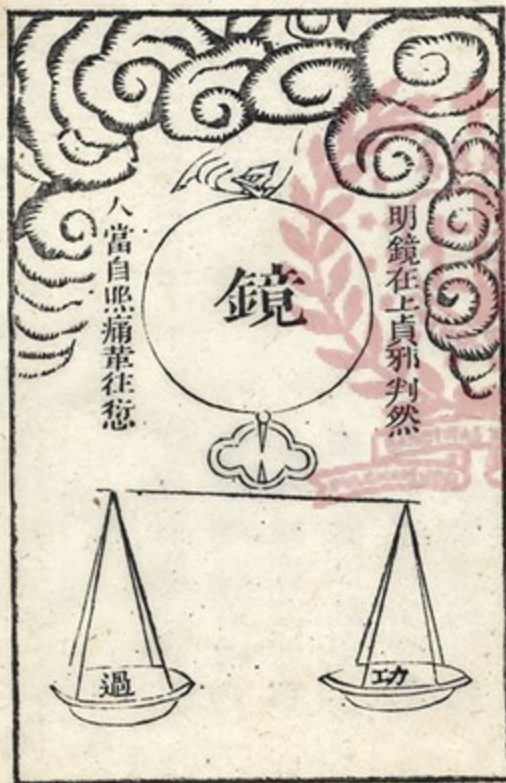 明鏡在上貞邪判然
鏡
人當自照痛革往愆
功
過